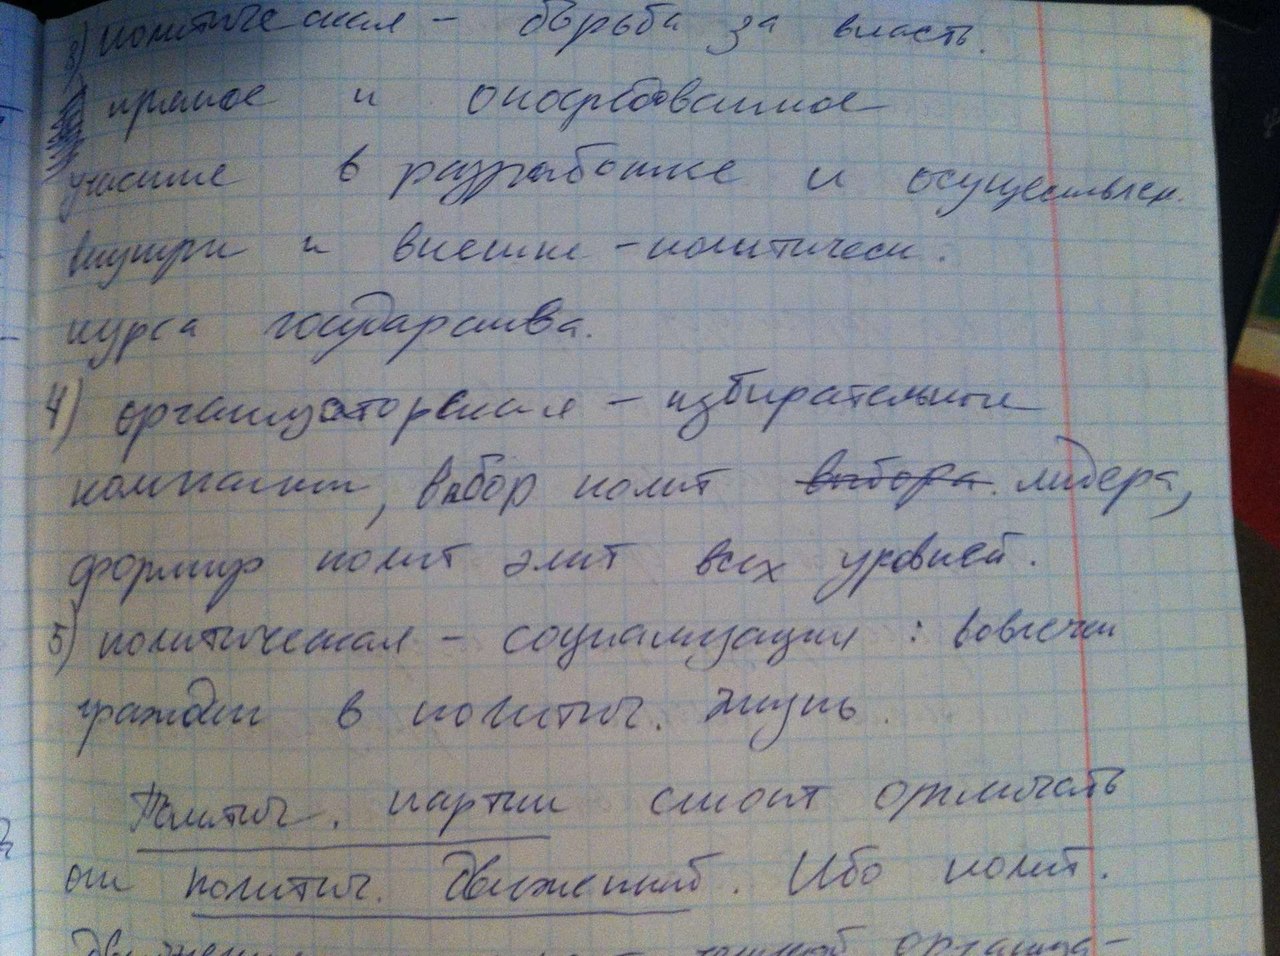 3) политическая - борьба за власть.
прямое и опосредованное
участие в разработке и осуществлен.
внутри и внешне - политическ.
курса государства.
4) организаторская - избирательные
компании, выбор полит выбора. лидера,
формир полит элит всех уровней.
5) политическая - социализация : вовлечен
граждан в политич. жизнь.
Политич. партии стоит отличать
от политич. движений. Ибо полит.
организа-